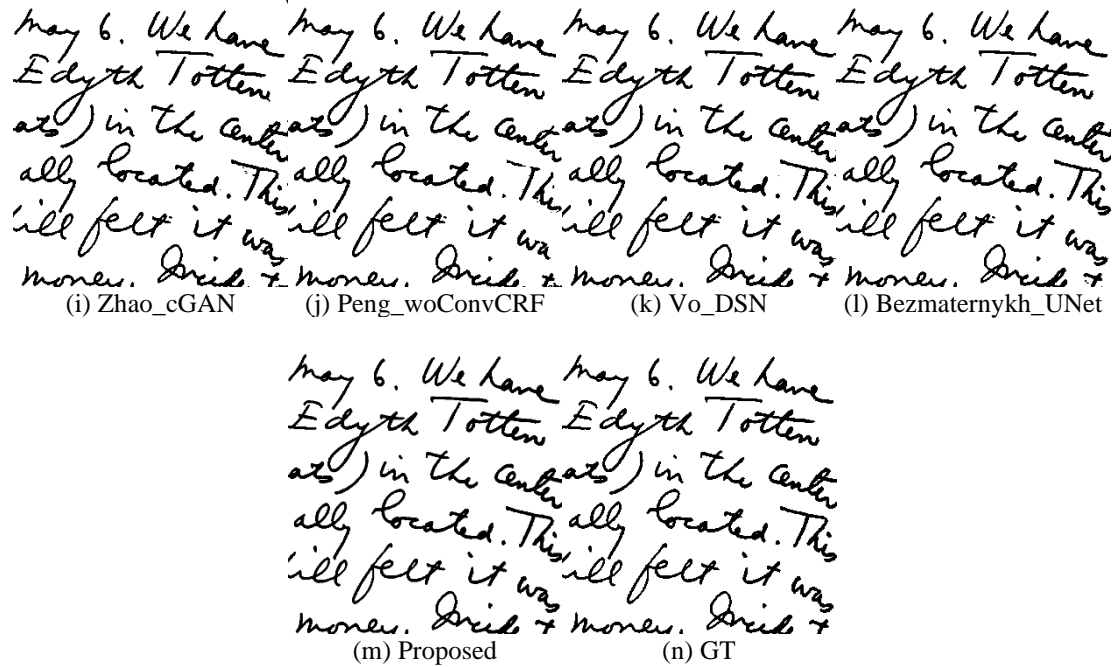 May 6. We have
Edyth Totten
ats) in the center
ally located. This
ill felt it was
money. Inside +
(i) Zhao_cGAN
May 6. We have
Edyth Totten
ats) in the center
ally located. This
ill felt it wa
money. Inside +
(j) Peng_woConvCRF
May 6. We have
Edyth Totten
ats) in the center
ally located. This
ill felt it was
money. Inside +
(k) Vo_DSN
May 6. We have
Edyth Totten
ats) in the center
ally located. This
ill felt it was
money. Inside +
(l) Bezmaternykh_UNet
May 6. We have
Edyth Totten
ats) in the center
ally located. This
ill felt it was
money. Inside +
(m) Proposed
May 6. We have
Edyth Totten
ats) in the center
ally located. This
ill felt it was
money. Inside +
(n) GT